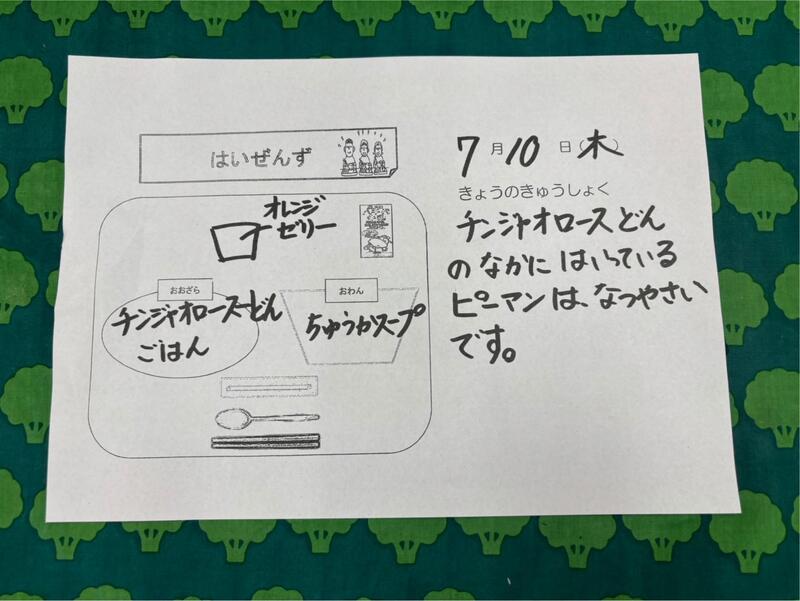 はいぜんず
オレンジ
ゼリー
おおざら
チンジャオロースーどん
ごはん
おわん
ちゅうかスープ
7月10日(木)
きょうのきゅうしょく
チンジャオロースどん
のなかにはいっている
ピーマンは、なつやさい
です。